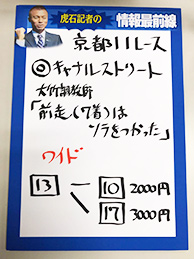 虎石記者の
情報最前線
京都11レース
◎キャナルストリート
大竹調教師
「前走(7着)は
ソラをつかった」
ワイド
13 ー 10 2000円
17 3000円